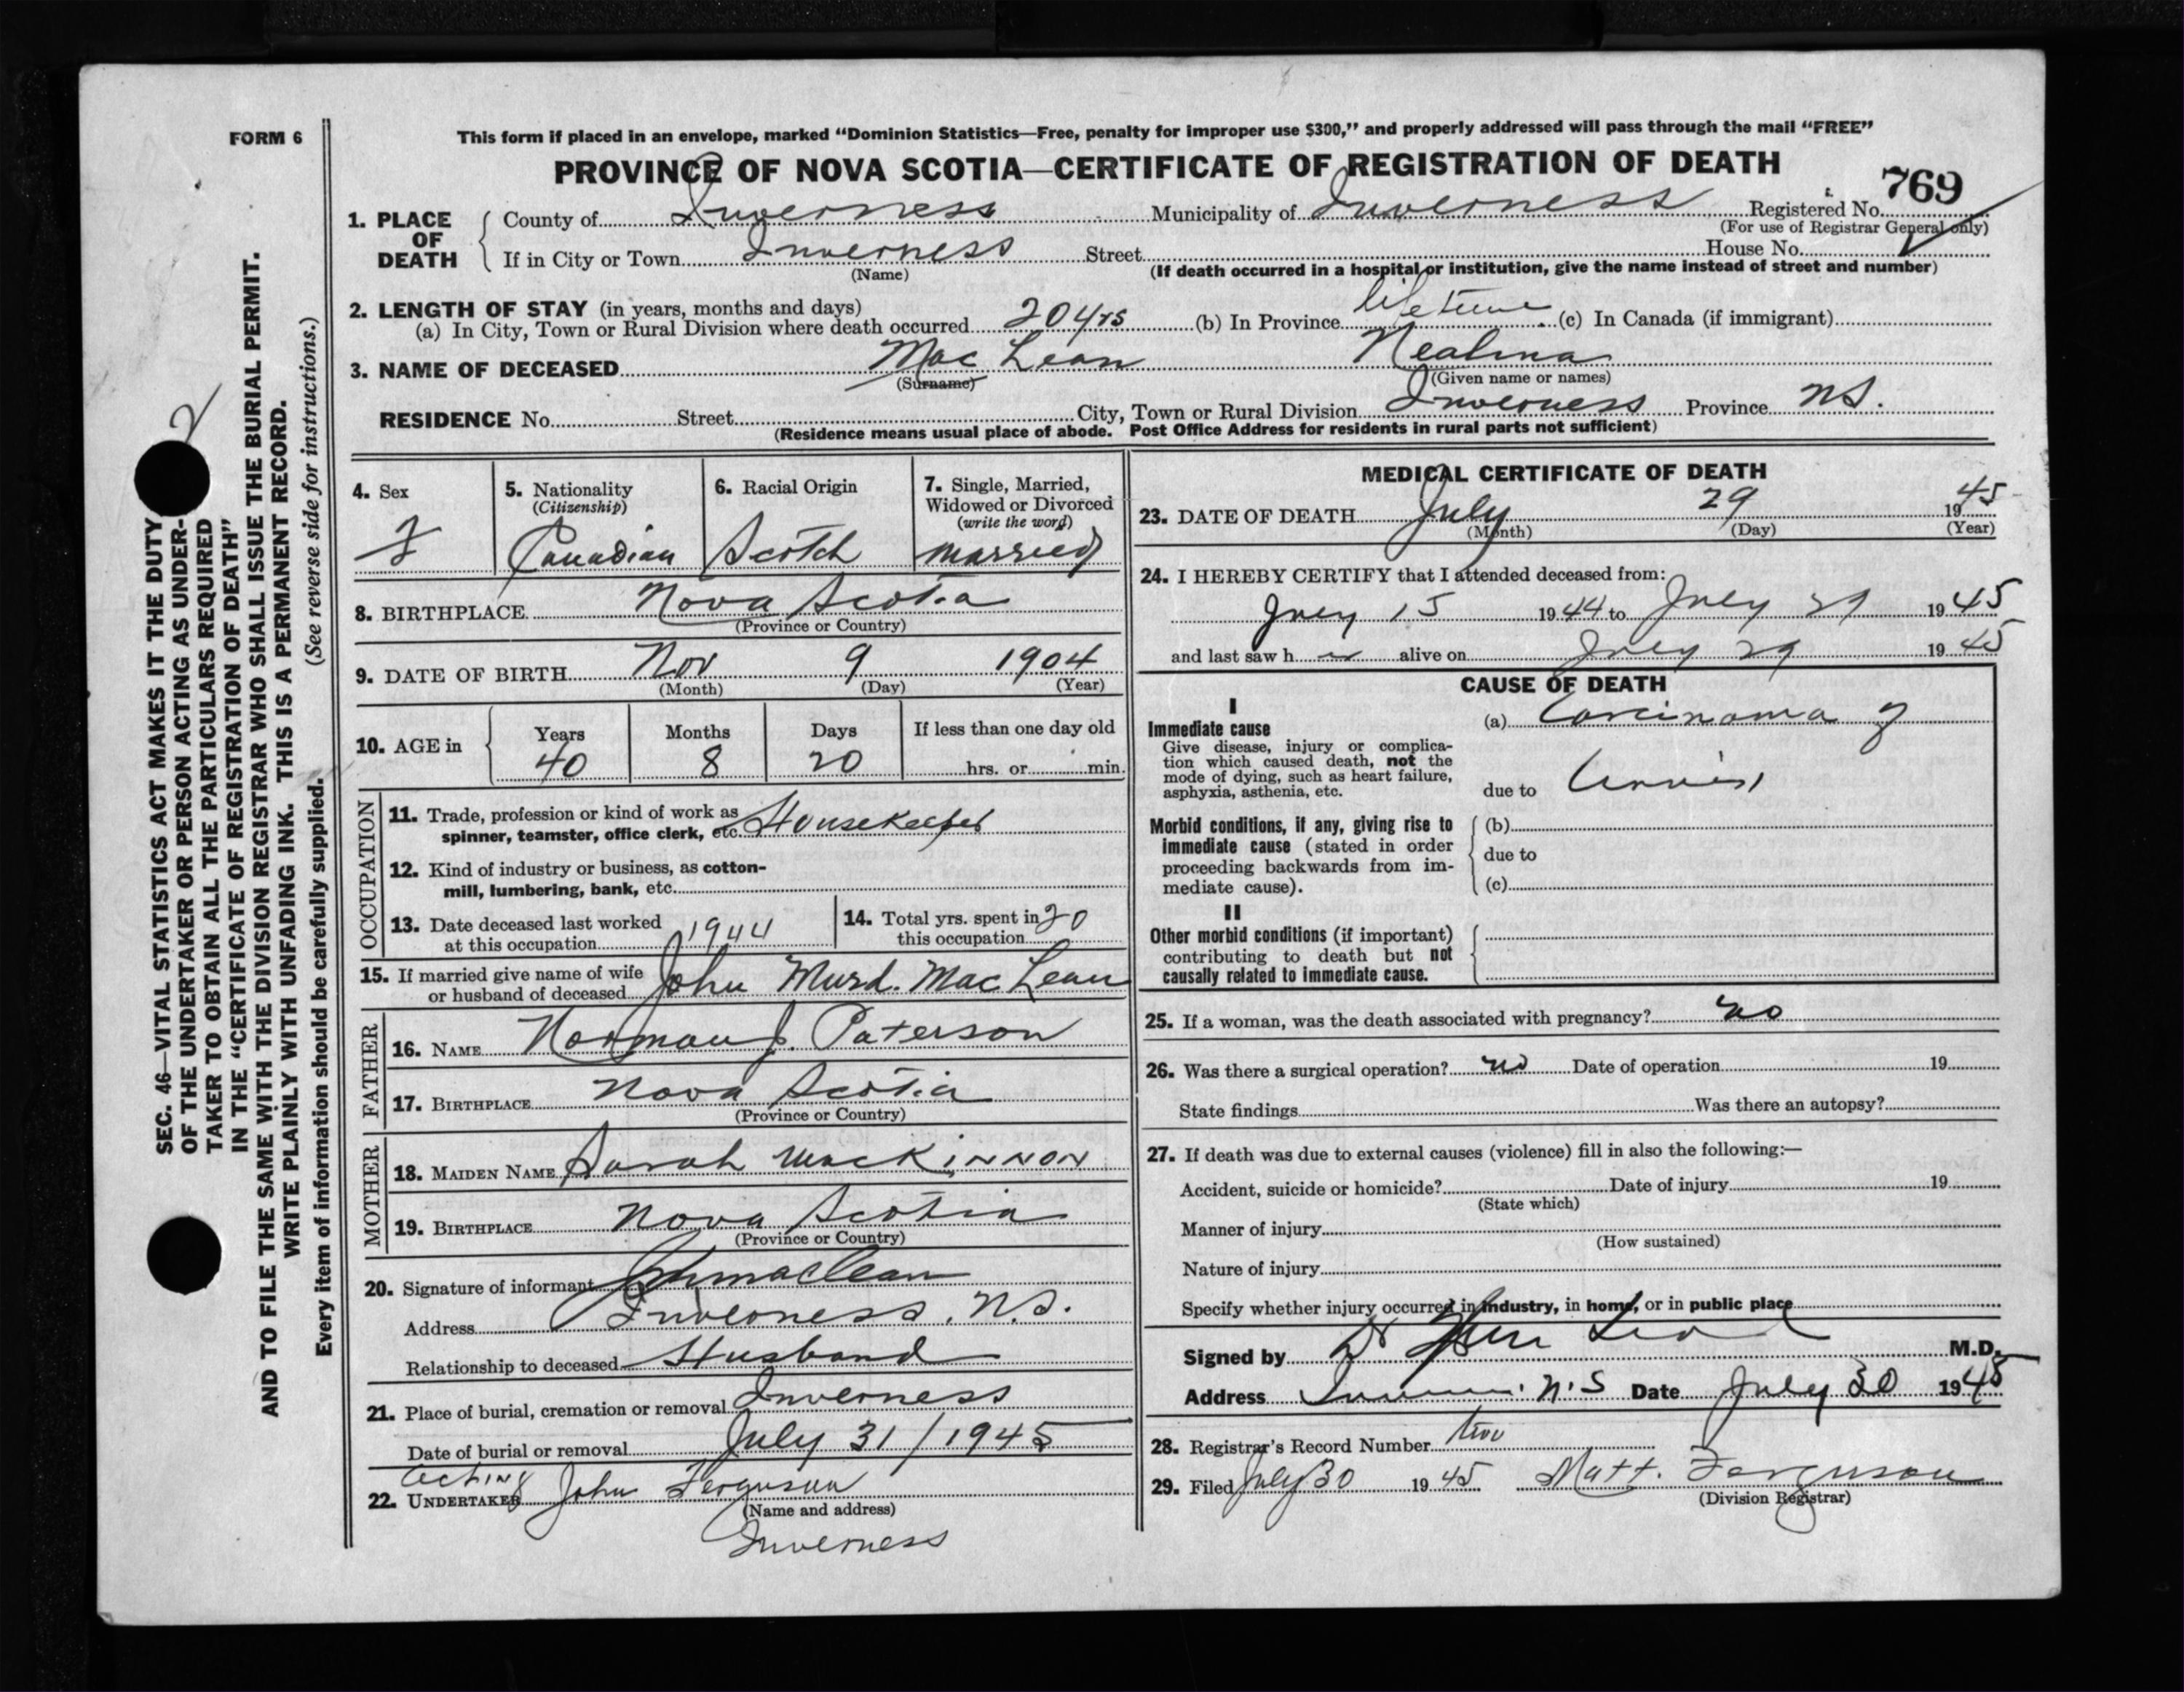 FORM 6
This form if placed in an envelope, marked “Dominion Statistics—Free, penalty for improper use $300,” and properly addressed will pass through the mail “FREE”
PROVINCE OF NOVA SCOTIA—CERTIFICATE OF REGISTRATION OF DEATH
769
1. PLACE OF DEATH
County of Inverness Municipality of Inverness Registered No.
(For use of Registrar General only)
If in City or Town Inverness Street House No.
(Name) (If death occurred in a hospital or institution, give the name instead of street and number)
2. LENGTH OF STAY (in years, months and days)
(a) In City, Town or Rural Division where death occurred 20 yrs (b) In Province lifetime (c) In Canada (if immigrant)
3. NAME OF DECEASED Mac Lean Nealina
(Surname) (Given name or names)
RESIDENCE No. Street City, Town or Rural Division Inverness Province N.S.
(Residence means usual place of abode. Post Office Address for residents in rural parts not sufficient)
4. Sex
F
5. Nationality
(Citizenship)
Canadian
6. Racial Origin
Scotch
7. Single, Married,
Widowed or Divorced
(write the word)
married
8. BIRTHPLACE Nova Scotia
(Province or Country)
9. DATE OF BIRTH Nov 9 1904
(Month) (Day) (Year)
10. AGE in
Years Months Days If less than one day old
40 8 20 hrs. or min.
OCCUPATION
11. Trade, profession or kind of work as
spinner, teamster, office clerk, etc. Housekeeper
12. Kind of industry or business, as cotton-
mill, lumbering, bank, etc.
13. Date deceased last worked
at this occupation 1944
14. Total yrs. spent in
this occupation 20
15. If married give name of wife
or husband of deceased John Murd. Mac Lean
FATHER
16. NAME Norman J. Paterson
17. BIRTHPLACE Nova Scotia
(Province or Country)
MOTHER
18. MAIDEN NAME Sarah MacKinnon
19. BIRTHPLACE Nova Scotia
(Province or Country)
20. Signature of informant JMMacLean
Address Inverness, N.S.
Relationship to deceased Husband
21. Place of burial, cremation or removal Inverness
Date of burial or removal July 31/1945
acting
22. UNDERTAKER John Ferguson
(Name and address)
Inverness
MEDICAL CERTIFICATE OF DEATH
23. DATE OF DEATH July 29 1945
(Month) (Day) (Year)
24. I HEREBY CERTIFY that I attended deceased from:
July 15 1944 to July 29 1945
and last saw h er alive on July 29 1945
CAUSE OF DEATH
I
Immediate cause
Give disease, injury or complica-
tion which caused death, not the
mode of dying, such as heart failure,
asphyxia, asthenia, etc.
(a) Carcinoma of
due to
Morbid conditions, if any, giving rise to
immediate cause (stated in order
proceeding backwards from im-
mediate cause).
(b)
due to
(c)
II
Other morbid conditions (if important)
contributing to death but not
causally related to immediate cause.
25. If a woman, was the death associated with pregnancy? no
26. Was there a surgical operation? no Date of operation 19
State findings Was there an autopsy?
27. If death was due to external causes (violence) fill in also the following:—
Accident, suicide or homicide? Date of injury 19
(State which)
Manner of injury
(How sustained)
Nature of injury
Specify whether injury occurred in industry, in home, or in public place
Signed by M.D.
Address N.S Date July 30 1945
28. Registrar's Record Number two
29. Filed July 30 1945 Matt. Ferguson
(Division Registrar)
2
SEC. 46—VITAL STATISTICS ACT MAKES IT THE DUTY
OF THE UNDERTAKER OR PERSON ACTING AS UNDER-
TAKER TO OBTAIN ALL THE PARTICULARS REQUIRED
IN THE “CERTIFICATE OF REGISTRATION OF DEATH”
AND TO FILE THE SAME WITH THE DIVISION REGISTRAR WHO SHALL ISSUE THE BURIAL PERMIT.
WRITE PLAINLY WITH UNFADING INK. THIS IS A PERMANENT RECORD.
(See reverse side for instructions.)
Every item of information should be carefully supplied.